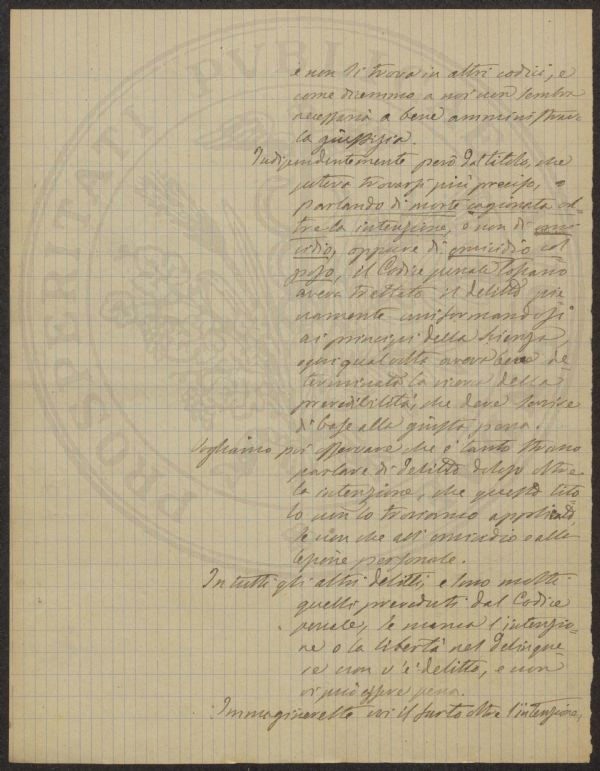 e non si trova in altri codici, e
come diremmo a noi non sembra
necessaria a bene amministrare
la giustizia.
Indipendentemente però dal titolo, che
poteva trovarsi più preciso, o
parlando di morte cagionata ol-
tre la intenzione, e non di omi-
cidio, oppure di omicidio col
poso, il Codice penale toscano
aveva trattato il delitto pie-
namente uniformandosi
ai principj della scienza,
ogni qual volta aveva bene de-
terminata la norma della
prevedibilità, che deve servire
di base alla giusta pena.
Vogliamo poi osservare che è tanto strano
parlare di delitto doloso oltre
la intenzione, che questo tito
lo non lo troviamo applicato,
se non che all'omicidio e alla
lesione personale.
In tutti gli altri delitti, e sono molti
quelli preveduti dal Codice
penale, se manca l'intenzio-
ne o la libertà nel delinque
re non v'è delitto, e non
vi può essere pena.
Immaginereste voi il furto oltre l'intenzione,
PROSPERITATI PUBLICAE